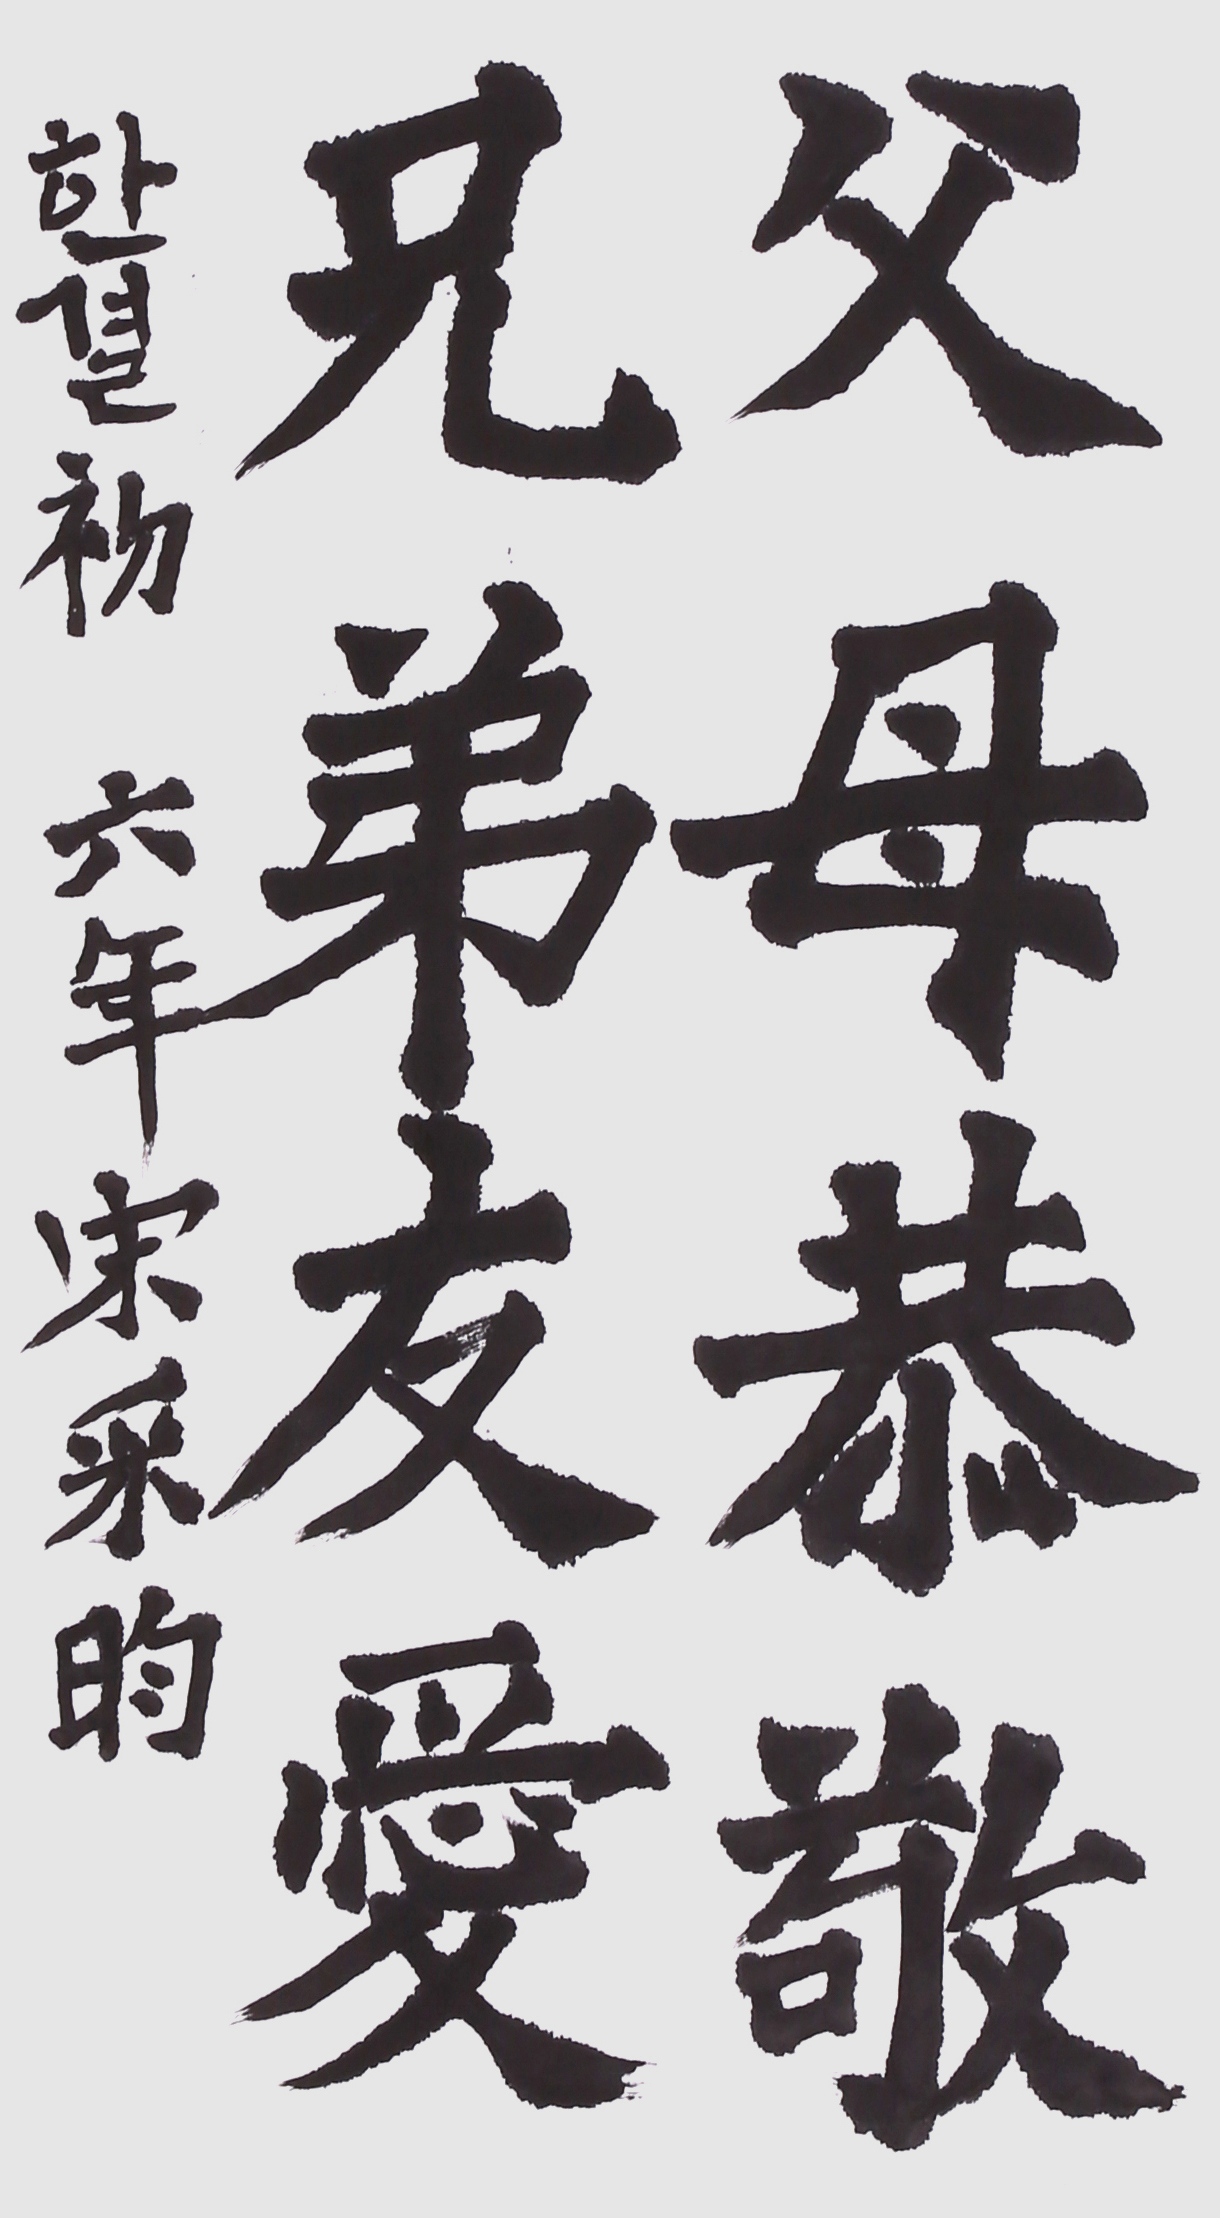 父母恭敬
兄弟友愛
한결初 六年 宋采昀